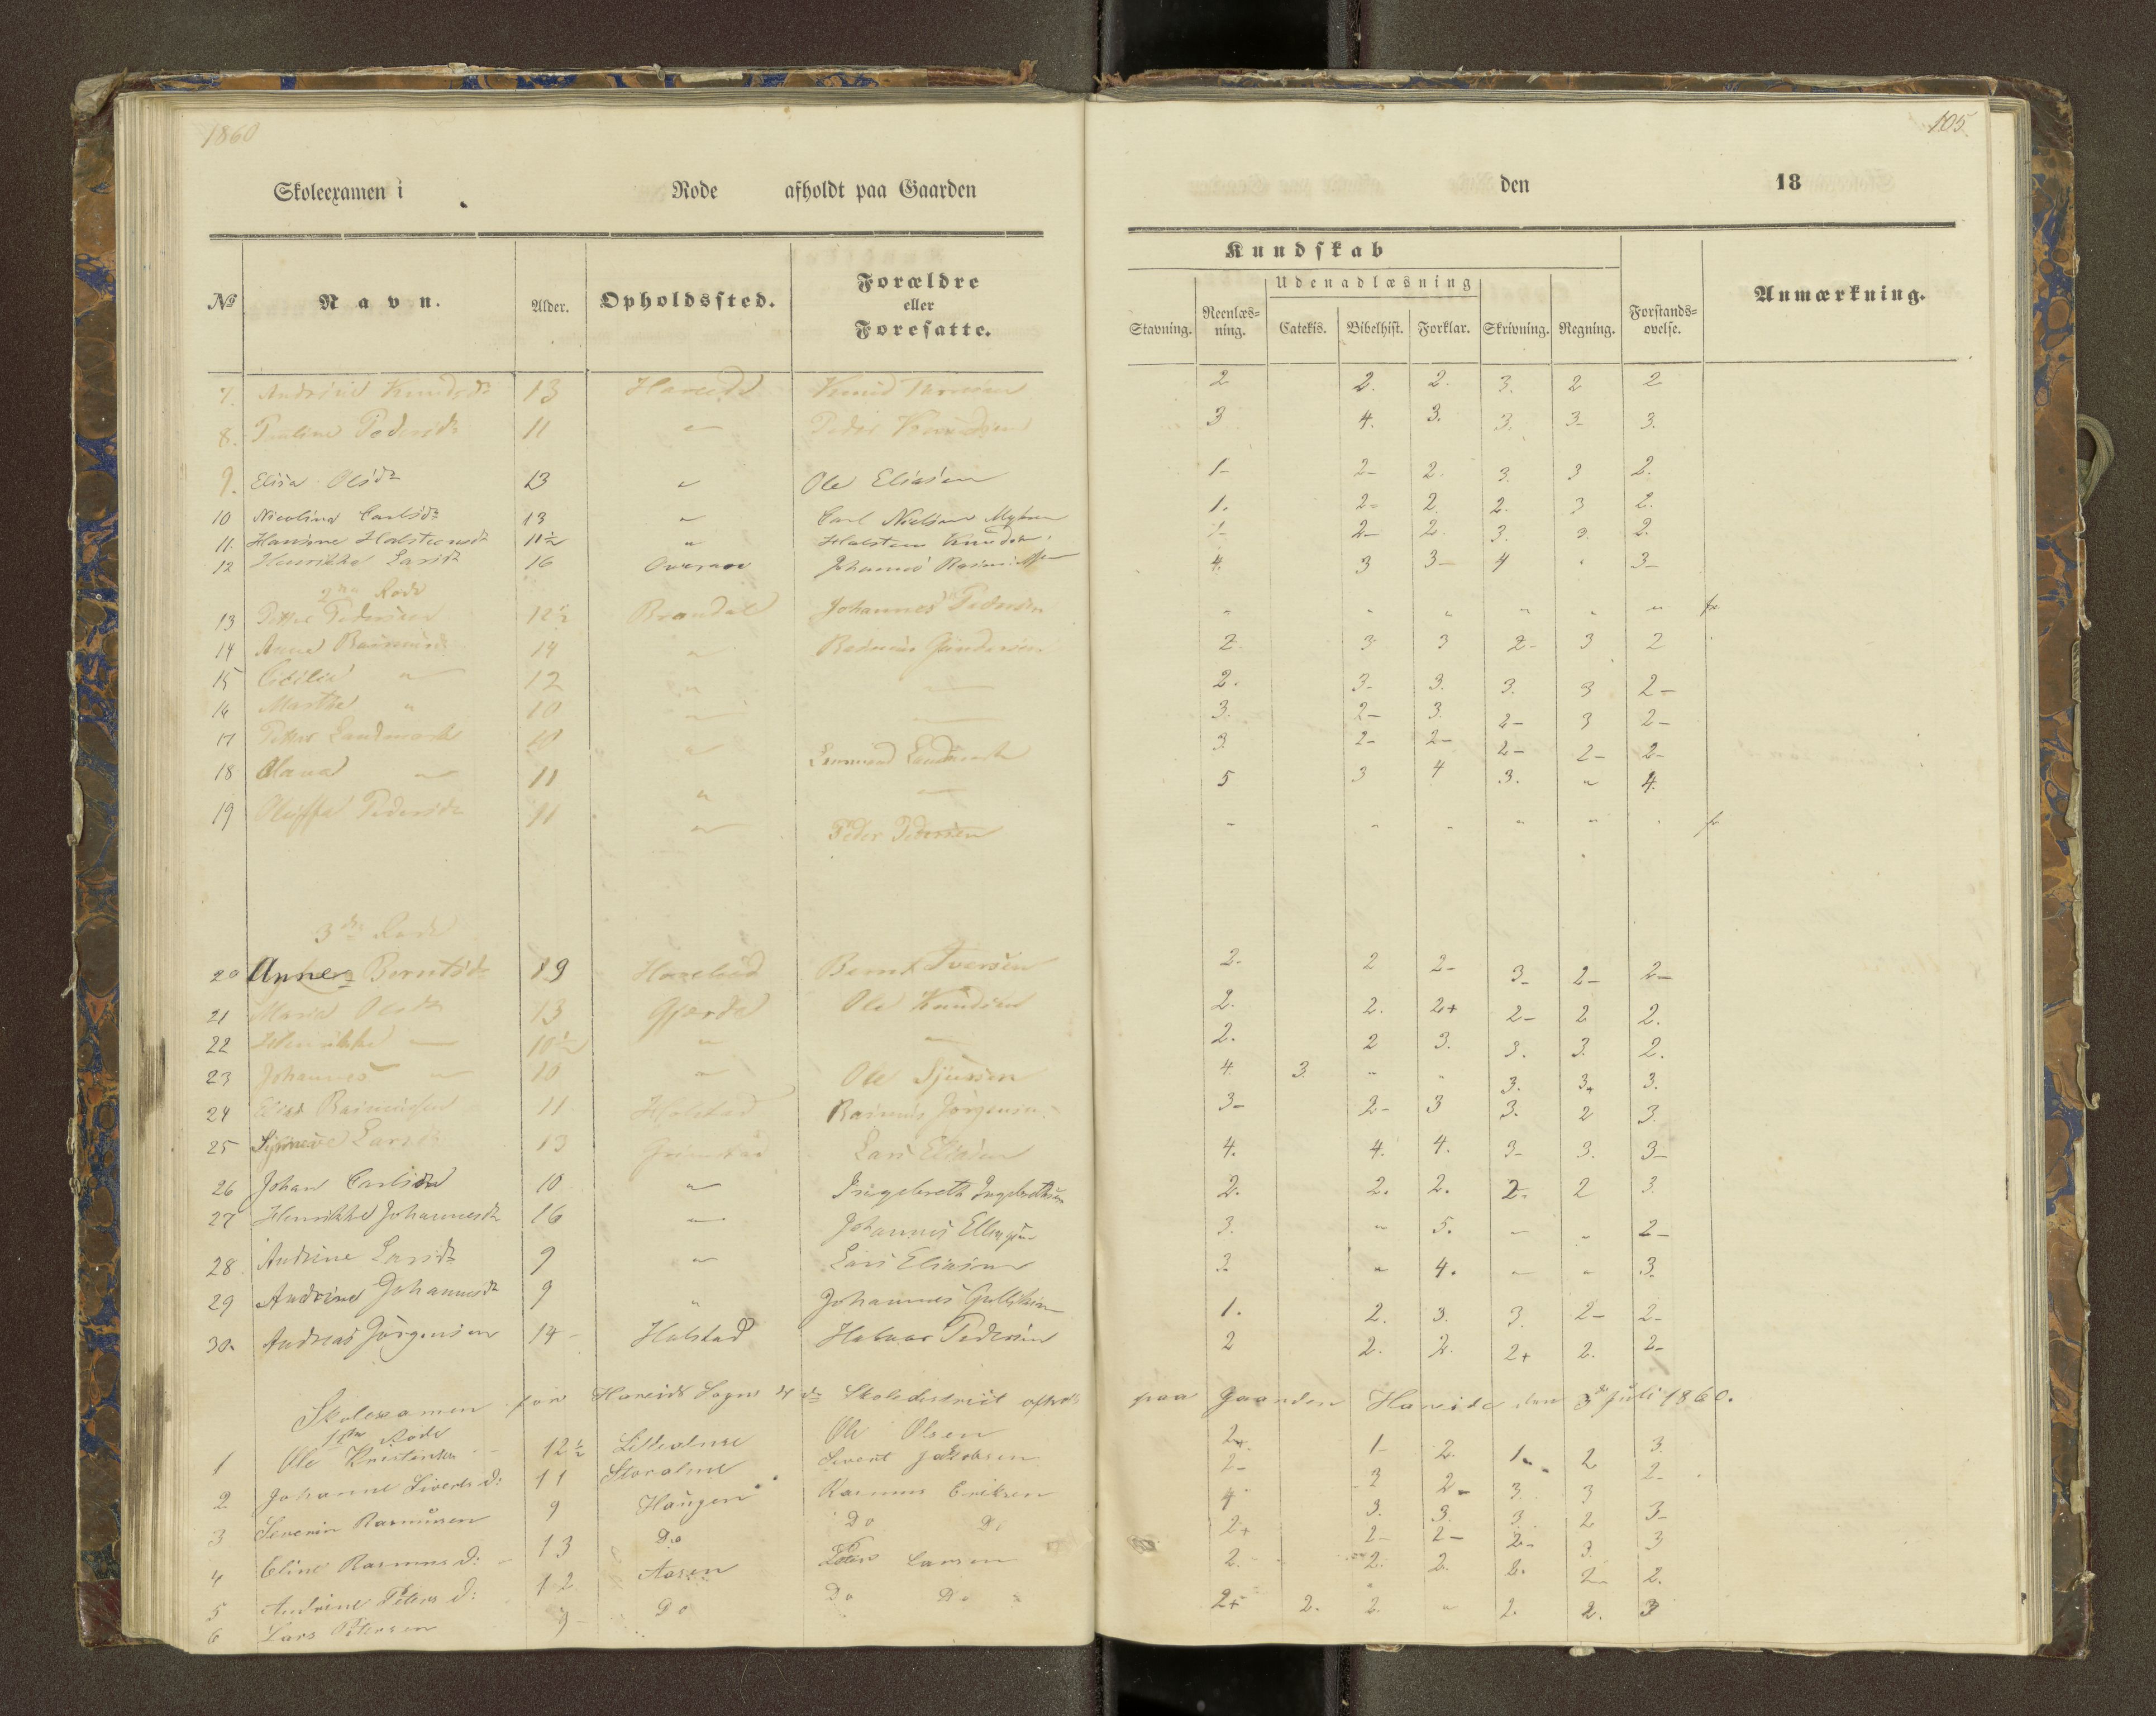 1860
105.
Skoleexamen i Rode afholdt paa Gaarden den 18
Kundskab
Udenadlæsning
№ Navn. Alder. Opholdssted. Forældre eller Foresatte. Stavning. Reenlæs=ning. Catekis. Bibelhist. Forklar. Skrivning. Regning. Forstands=øvelse. Anmærkning.
7. Andrine Knudsdr 13 Hareide Knud 2 2. 2. 3. 2 2
8. Pauline Pedersdr 11 " Peder Knudsen 3 4. 3. 3. 3- 3.
9. Elisa Olsdr 13 " Ole Eliasen 1- 2- 2. 3. 3 2.
10 Nicolina Carlsdr 13 " Carl Nielsen 1. 2- 2. 2. 3 2.
11. Hansine Halsteensdr 11½ " Halsteen Knudsen 1- 2- 2. 3. 3. 2.
12 Henrikke Larsdr 16 Johannes 4. 3 3- 4 " 3-
2den Rode
13 Petter Pedersen 12½ Brandal Johannes Pedersen " " " " " " fr
14 Anne 14 " Rasmus 2. 3 3 2- 3 2
15 Cicilia " 12 " " 2. 3- 3. 3. 3 2-
16 Marthe " 10 " " 3. 2- 3. 2- 3 2-
17 Petter Landmark 10 " Landmark 3 2- 2- 2- 2- 2-
18 Olava " 11 " " 5 3 4 3. " 4.
19 Pedersdr 11 " Peder Pedersen " " " " " " fr
3die Rode
20 Anne Berntsdr 19 Bernt Iversen 2. 2 2- 3- 2- 2-
21 Maria Olsdr 13 Gjerde Ole Knudsen 2. 2. 2+ 2- 2 2.
22 Henrikke " 10½ " " 2. 2 3. 3. 3. 2.
23 Johannes " 10 " Ole Sjursen 4. 3. " " 3. 3+ 3.
24 Elias Rasmussen 11 Halstad Rasmus Jörgensen 3- 2- 3 3. 2 3.
25 Larsdr 13 Grimstad Lars Eliasen 4. 4. 4. 3- 3. 3-
26 Johan Carlsen 10 " Ingebreth Ingebrethsen 2. 2. 2. 2. 2 3.
27 Henrikke Johannesdr 16 " Johannes 3. " 5. " " 2-
28. Andrine Larsdr 9 " Lars Eliasen 3. " 4. " " 3.
29 Andrine Johannesdr 9 " Johannes 1. 2. 3. 3. 2- 2-
30. Andreas Jörgensen 14 Halstad Halvar Pedersen 2 2. 2. 2+ 2. 2-
Skolexamen for Hareids Sogns 4de Skoledistrict afholdt paa Gaarden Hareide den 3de Juli 1860.
1ste Rode
1 Ole Kristensen 12½ Lilleolme Ole Olsen 2+ 1- 2. 1. 2 3.
2 Johanne Siverts d: 11 Storolme Sivert Jakobsen 2- 3 2- 3. 3 2-
3 Severin Rasmusen 9 Haugen Rasmus Eriksen 4 3. 3. 3. 2 3-
4 Eline Rasmus d: 13 Do Do Do 2+ 2- 2- 2- 3. 3
5 Andrine Peters d: 12 Aasen Peter Larsen 2. 2. 2. 2. 2- 2.
6 Lars Petersen 9 Do Do Do 2+ 2. 2. " 2. 2. 3